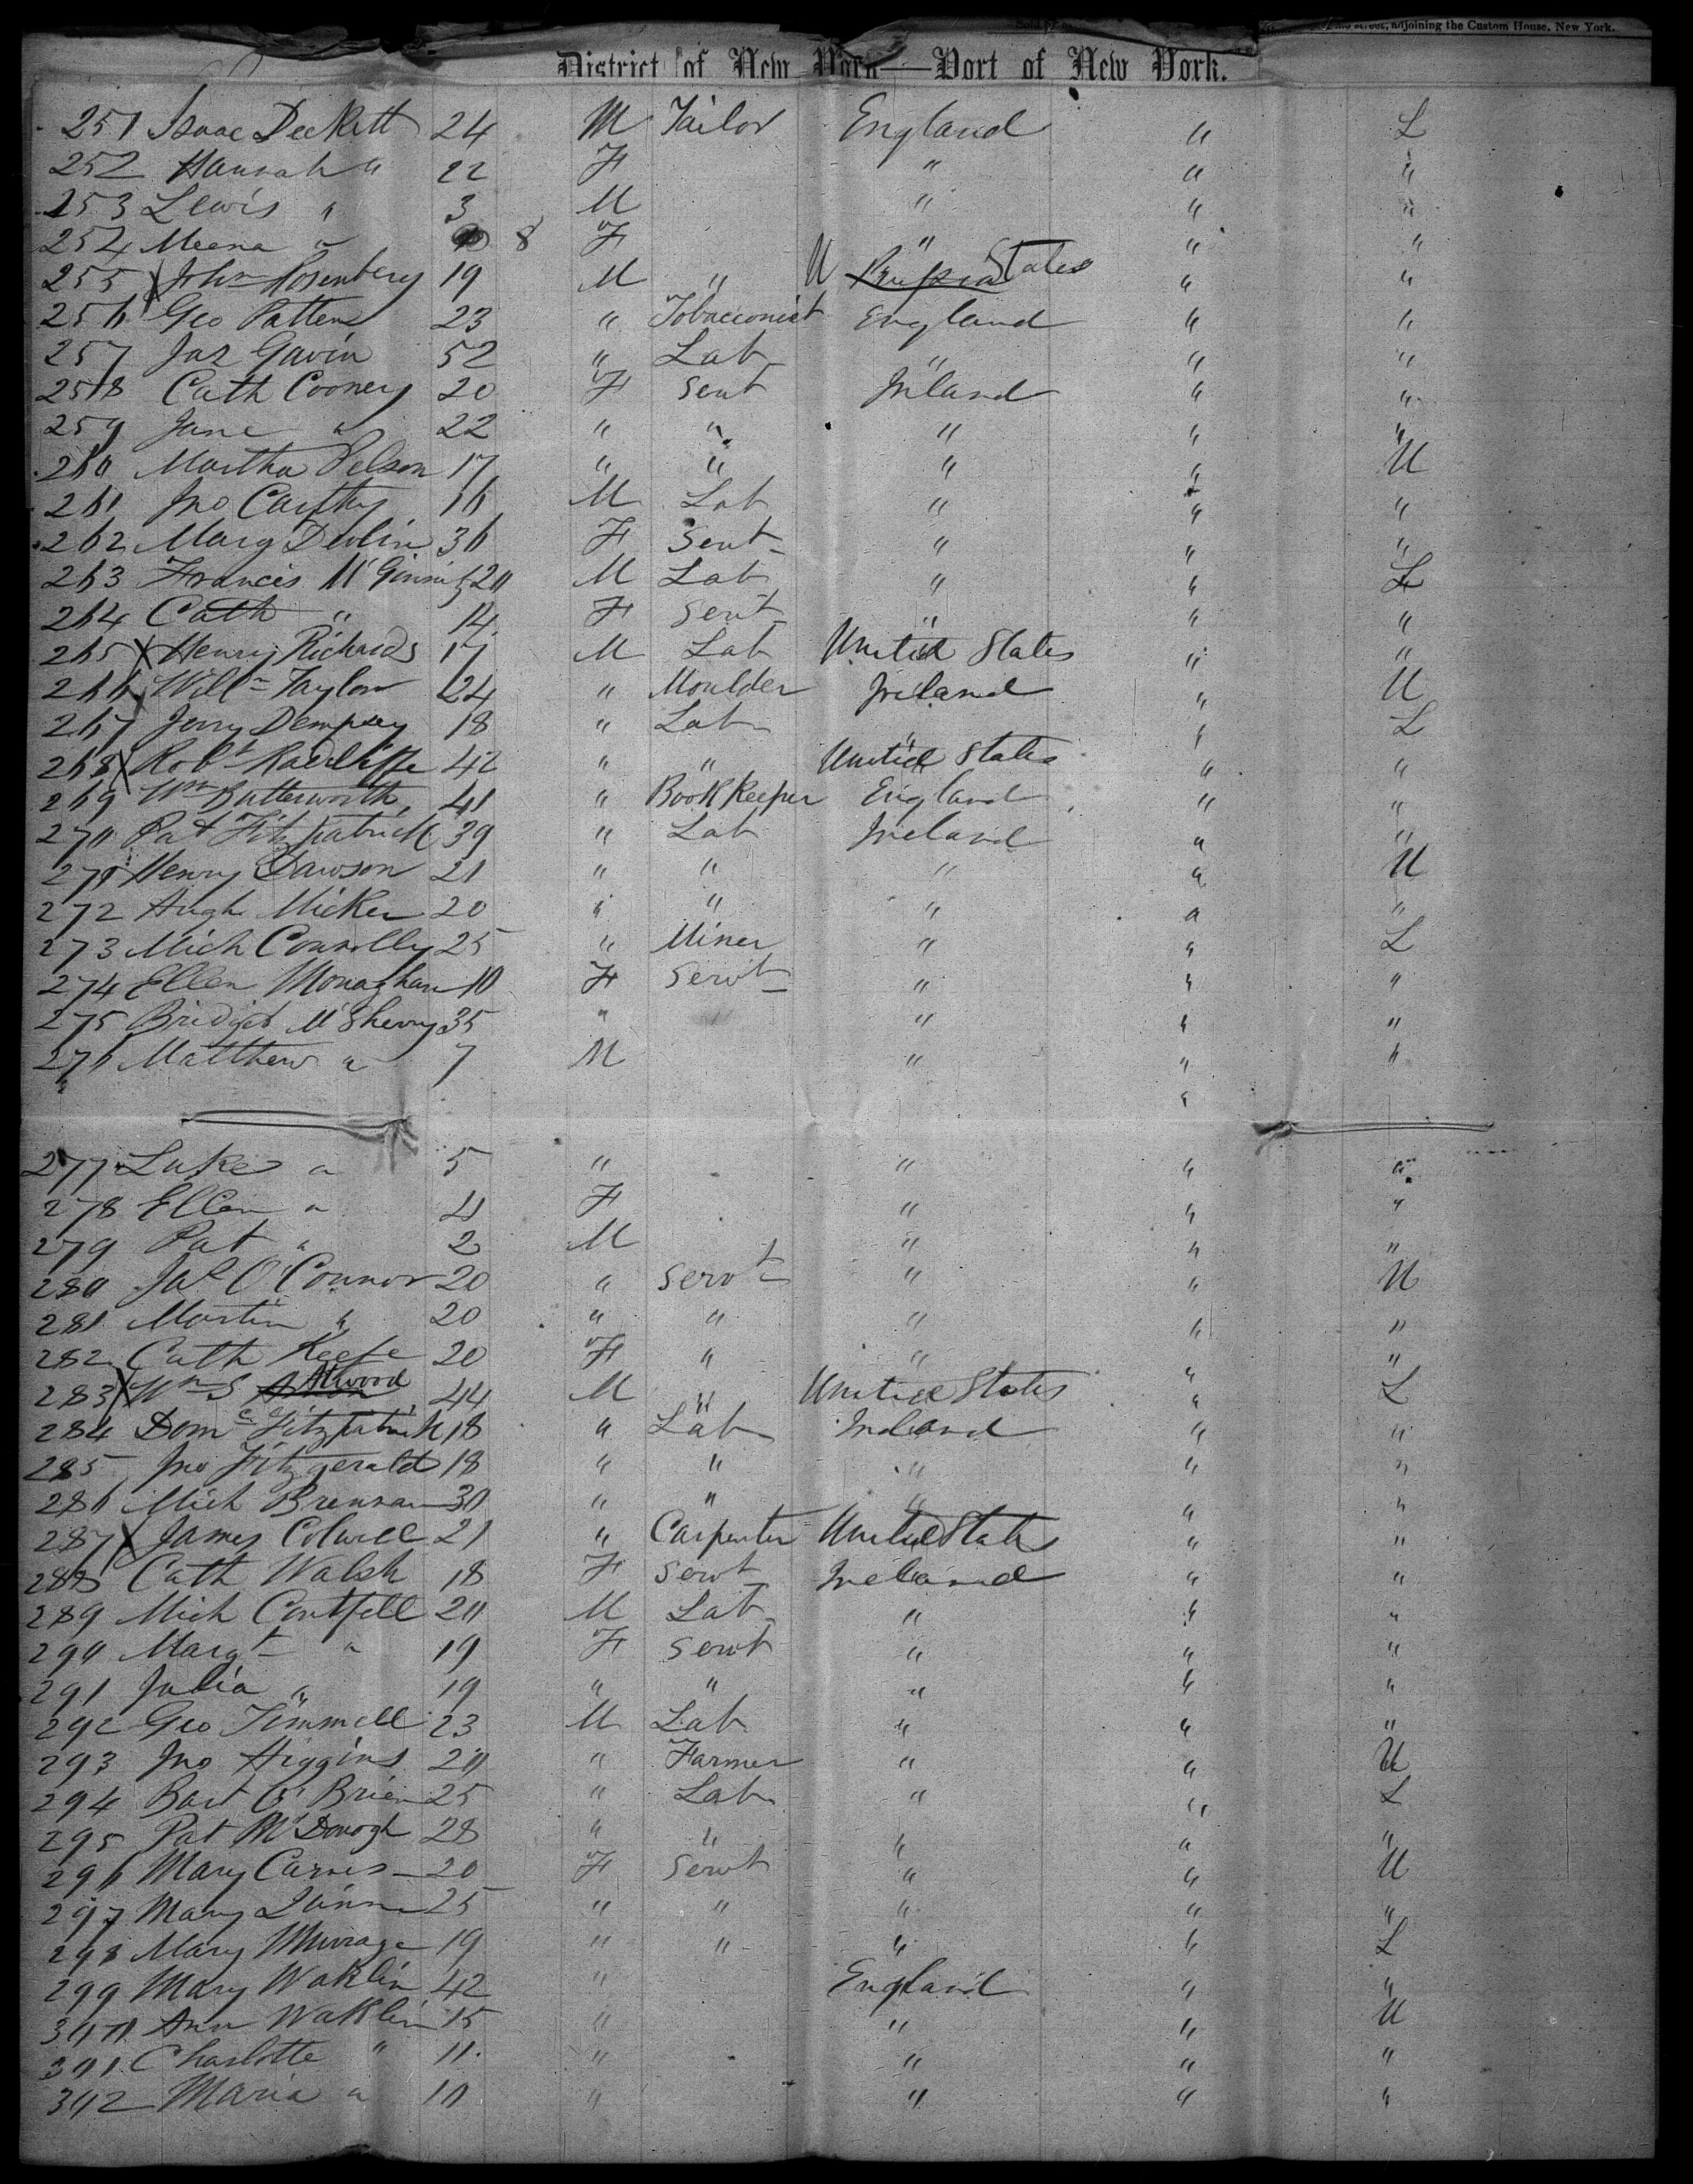 adjoining the Custom House, New York.
District of New York—Port of New York.
251 Isaac Deckett 24 M Tailor England " L
252 Hannah " 22 F " " "
253 Lewis " 3 M " " "
254 Meena " 8 F " " "
255 X John Rosenberg 19 M " U States " "
256 Geo Patten 23 " Tobacconist England " "
257 Jas Gavin 52 " Lab " " "
258 Cath Cooney 20 F Sevt Ireland " "
259 Jane " 22 " " " " "
260 Martha Pelson 17 " " " " U
261 Jno Carthy 16 M Lab " " "
262 Mary Devlin 36 F Sevt " " "
263 Francis McGinnis 20 M Lab " " L
264 Cath " 14 F Sevt " " "
265 X Henry Richards 17 M Lab United States " "
266 Willm Taylor 24 " Moulder Ireland " U
267 Jerry Dempsey 18 " Lab " " L
268 X Robt Radcliffe 42 " " United States " "
269 Wm Butterworth 41 " Book Keeper England " "
270 Pat Fitzpatrick 39 " Lab Ireland " "
271 Henry Dawson 21 " " " " U
272 Hugh Micker 20 " " " " "
273 Mich Connolly 25 " Miner " " L
274 Ellen Monaghan 10 F Servt " " "
275 Bridget McSherry 35 " " " "
276 Matthew " 7 M " " "
"
277 Luke " 5 " " " "
278 Ellen " 4 F " " "
279 Pat " 2 M " " "
280 Jas O'Connor 20 " Servt " " U
281 Martin " 20 " " " " "
282 Cath Keefe 20 F " " " "
283 X Wm S Atwood 44 M " United States " L
284 Domc Fitzpatrick 18 " Lab Ireland " "
285 Jno Fitzgerald 18 " " " " "
286 Mich Brennan 30 " " " " "
287 X James Colwell 21 " Carpenter United States " "
288 Cath Walsh 18 F Servt Ireland " "
289 Mich Cantfell 20 M Lab " " "
290 Margt " 19 F Servt " " "
291 Julia " 19 " " " " "
292 Geo Timmell 23 M Lab " " "
293 Jno Higgins 20 " Farmer " " U
294 Bart O'Brien 25 " Lab " " L
295 Pat McDonogh 28 " " " " "
296 Mary Carnes 20 F Servt " " U
297 Mary Quinn 25 " " " " "
298 Mary Murrage 19 " " " " L
299 Mary Waklin 42 " England " "
300 Ann Waklin 15 " " " U
301 Charlotte " 11 " " " "
302 Maria " 10 " " " "